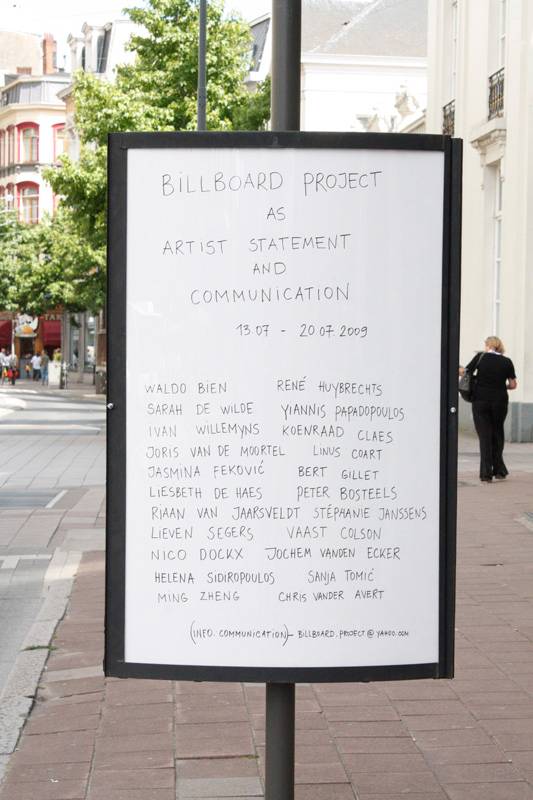 BILLBOARD PROJECT
AS
ARTIST STATEMENT
AND
COMMUNICATION
13.07 - 20.07.2009
WALDO BIEN RENÉ HUYBRECHTS
SARAH DE WILDE YIANNIS PAPADOPOULOS
IVAN WILLEMYNS KOENRAAD CLAES
JORIS VAN DE MOORTEL LINUS COART
JASMINA FEKOVIĆ BERT GILLET
LIESBETH DE HAES PETER BOSTEELS
RIAAN VAN JAARSVELDT STÉPHANIE JANSSENS
LIEVEN SEGERS VAAST COLSON
NICO DOCKX JOCHEM VANDEN ECKER
HELENA SIDIROPOULOS SANJA TOMIĆ
MING ZHENG CHRIS VANDER AVERT
(INFO. COMMUNICATION)- BILLBOARD.PROJECT@YAHOO.COM